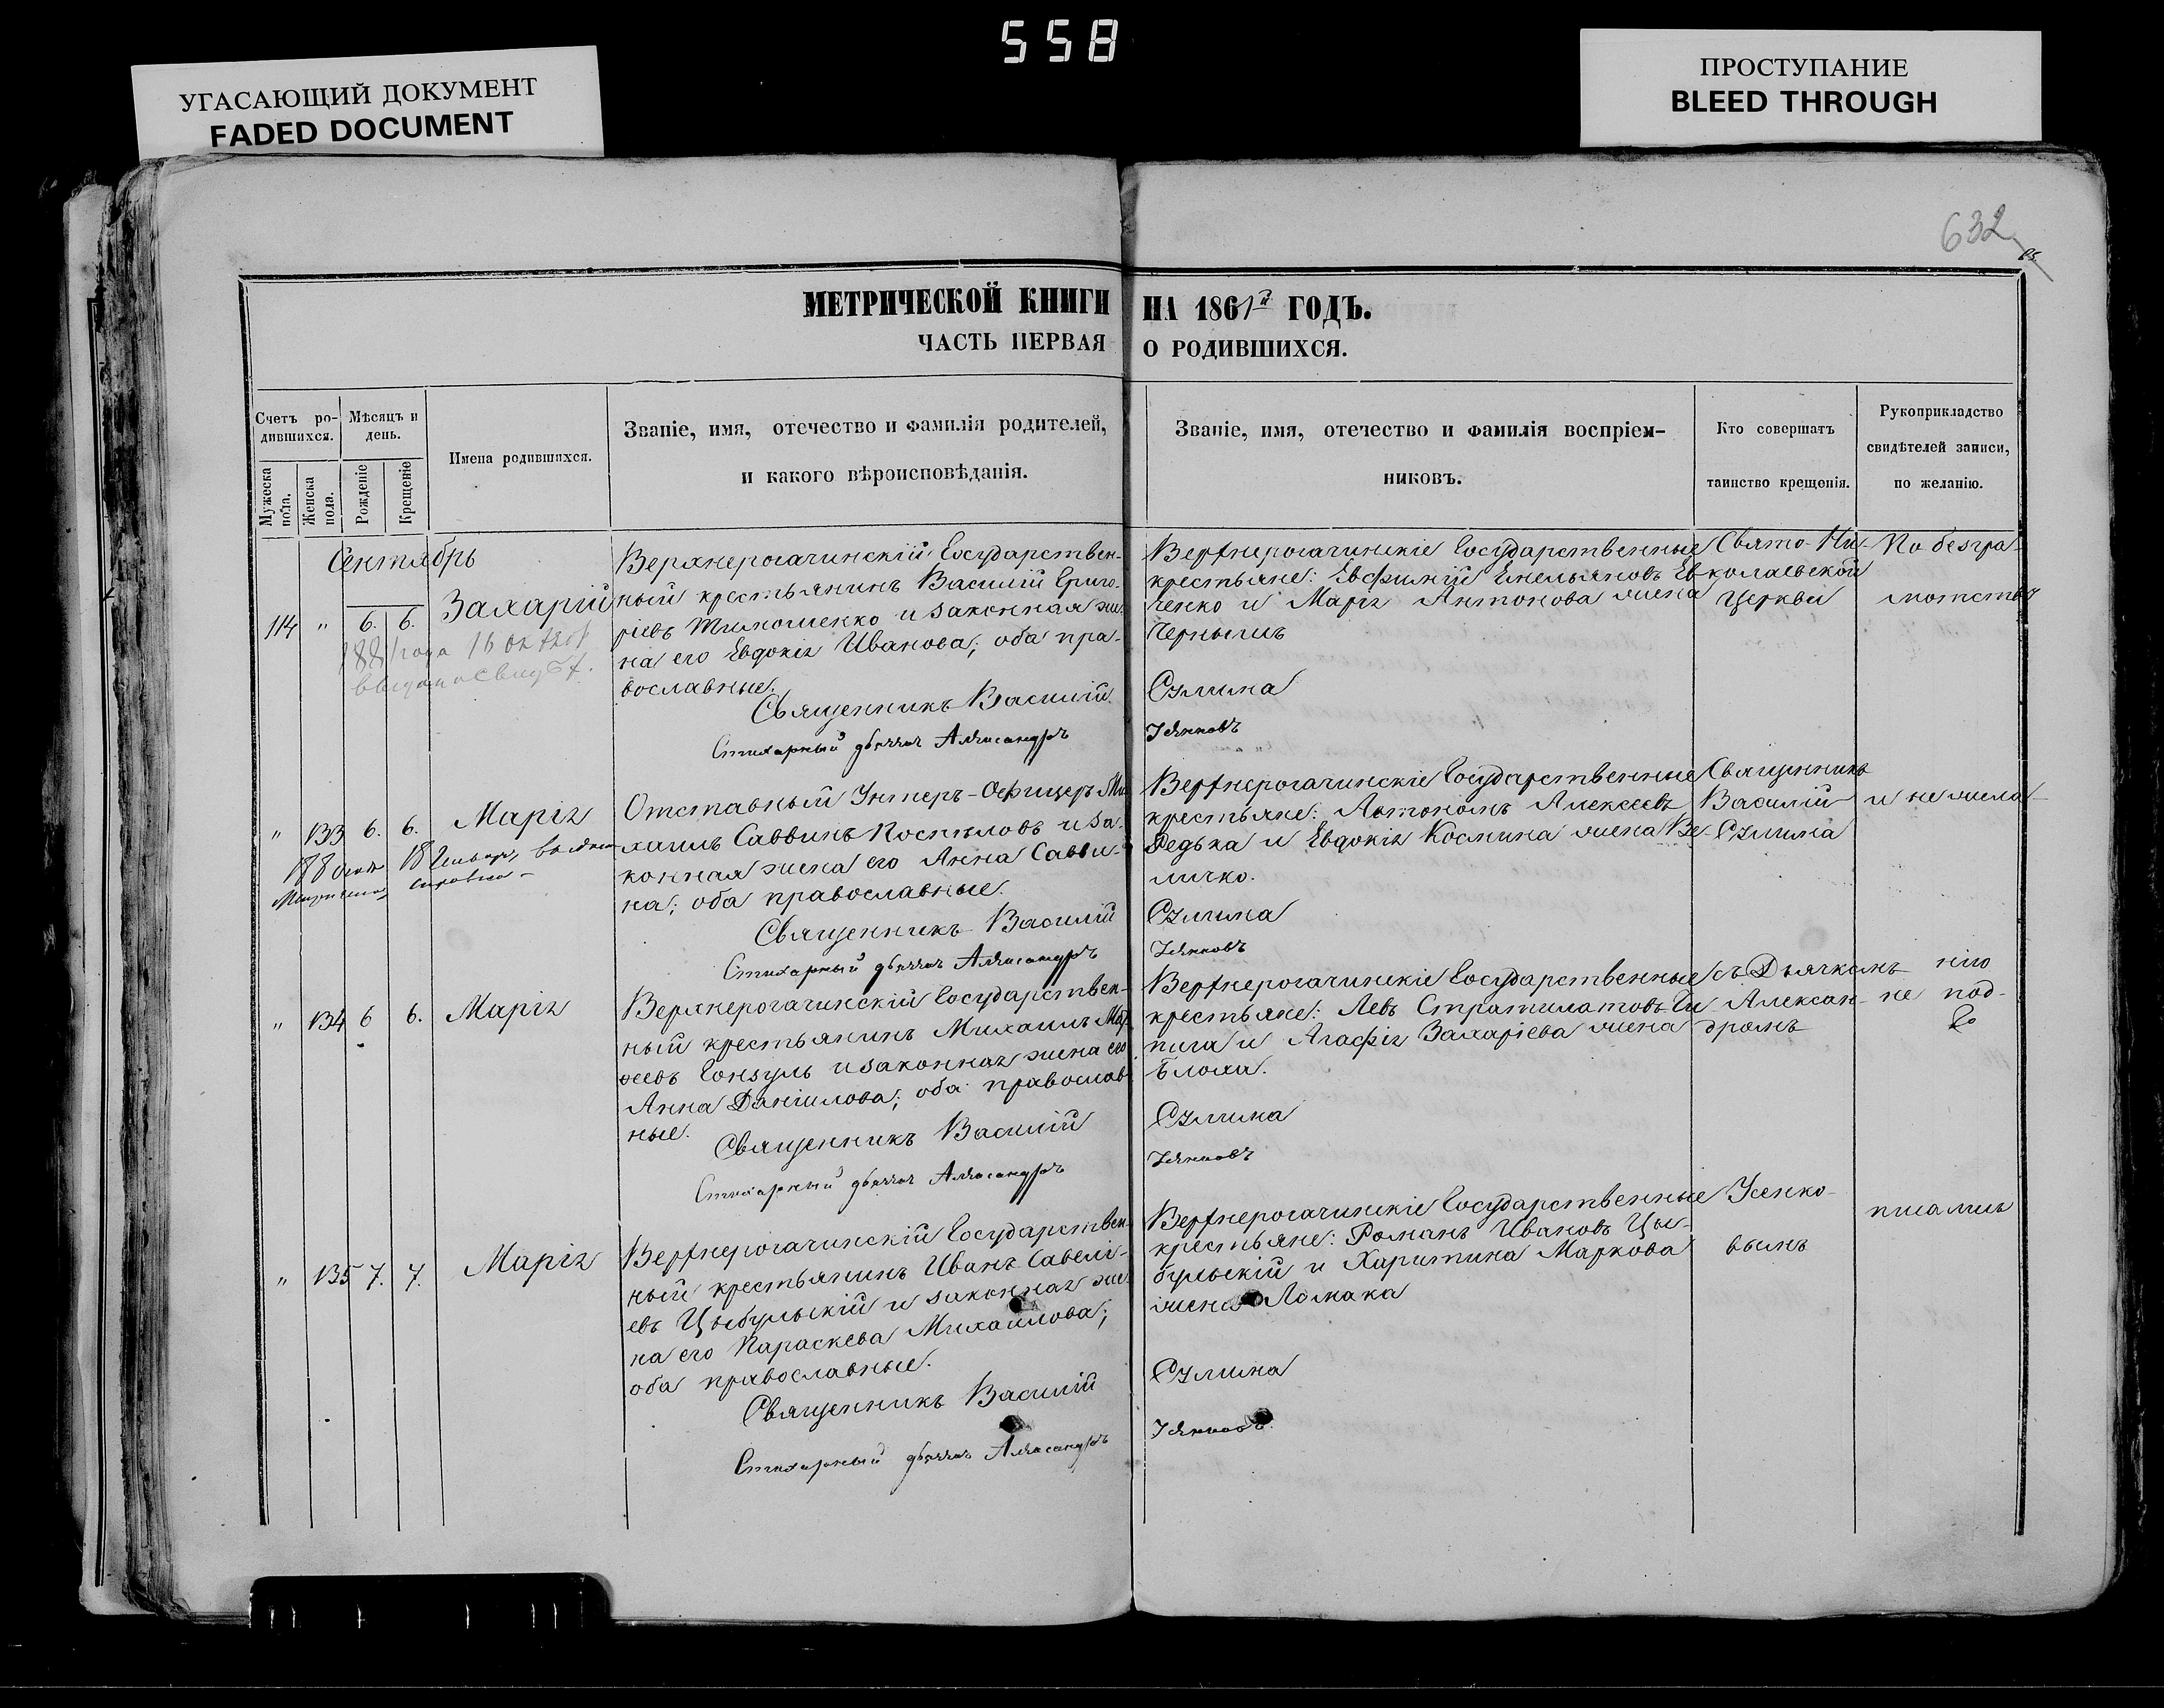 558
УГАСАЮЩИЙ ДОКУМЕНТ
FADED DOCUMENT
ПРОСТУПАНИЕ
BLEED THROUGH
632
МЕТРИЧЕСКОЙ КНИГИ НА 1861й ГОДЪ.
ЧАСТЬ ПЕРВАЯ О РОДИВШИХСЯ.
Счетъ ро-
дившихся.
Мѣсяцъ и
день.
Мужеска
пола.
Женска
пола.
Рожденіе
Крещеніе
Имена родившихся.
Званіе, имя, отечество и фамилія родителей,
и какого вѣроисповѣданія.
Званіе, имя, отечество и фамилія воспріем-
никовъ.
Кто совершатъ
таинство крещенія.
Рукоприкладство
свидѣтелей записи,
по желанію.
Сентябрь
114 " 6. 6. Захарій
Верхнерогачинскій Государствен-
ный крестьянинъ Василій Григо-
ріевъ Тимошенко и законная же-
на его Евдокія Иванова; оба пра-
вославные.
Священникъ Василій
Стихарный дьячекъ Александръ
Верхнерогачинскіе Государственные
крестьяне: Евфимій Емельяновъ Ев-
ченко и Марія Антонова жена
Чернышъ
Сулима
Усенковъ
Свято-Ни-
колаевской
Церкви
По безгра-
мотству
" 133 6. 6. Марія
Отставный Унтеръ-Офицеръ Ми-
хаилъ Саввинъ Поспѣловъ и за-
конная жена его Анна Савви-
на; оба православные.
Священникъ Василій
Стихарный дьячекъ Александръ
Верхнерогачинскіе Государственные
крестьяне: Автономъ Алексеевъ
Редька и Евдокія Космина жена Ве-
личко.
Сулима
Усенковъ
Священникъ
Василій
Сулима
и не жела-
" 134 6 6. Марія
Верхнерогачинскій Государствен-
ный крестьянинъ Михаилъ Мат-
ѳеевъ Гонзуль и законная жена его
Анна Даніилова; оба православ-
ные.
Священникъ Василій
Стихарный дьячекъ Александръ
Верхнерогачинскіе Государственные
крестьяне: Левъ Стратилатовъ
и Агафія Захаріева жена
Блоха.
Сулима
Усенковъ
съ Дьячкомъ
Алексан-
дромъ
нію
не под-
" 135 7. 7. Марія
Верхнерогачинскій Государствен-
ный крестьянинъ Иванъ Савелі-
евъ Цыбульскій и законная же-
на его Параскева Михаилова;
оба православные.
Священникъ Василій
Стихарный дьячекъ Александръ
Верхнерогачинскіе Государственные
крестьяне: Романъ Ивановъ Цы-
бульскій и Харитина Маркова
жена Ломака
Сулима
Усенковъ
Усенко-
вымъ
писались